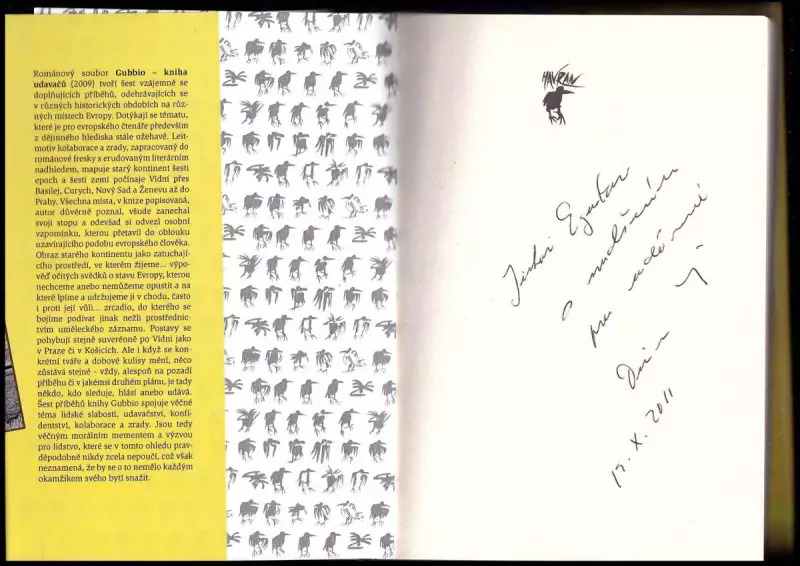 Románový soubor Gubbio – kniha
udavačů (2009) tvoří šest vzájemně se
doplňujících příběhů, odehrávajících se
v různých historických obdobích na růz-
ných místech Evropy. Dotýkají se tématu,
které je pro evropského čtenáře především
z dějinného hlediska stále ožehavé. Leit-
motiv kolaborace a zrady, zapracovaný do
románové fresky s erudovaným literárním
nadhledem, mapuje starý kontinent šesti
epoch a šesti zemí počínaje Vídní přes
Basilej, Curych, Nový Sad a Ženevu až do
Prahy. Všechna místa, v knize popisovaná,
autor důvěrně poznal, všude zanechal
svoji stopu a odevšad si odvezl osobní
vzpomínku, kterou přetavil do oblouku
uzavírajícího podobu evropského člověka.
Obraz starého kontinentu jako zatuchají-
cího prostředí, ve kterém žijeme... výpo-
věď očitých svědků o stavu Evropy, kterou
nechceme anebo nemůžeme opustit a na
které lpíme a udržujeme ji v chodu, často
i proti její vůli... zrcadlo, do kterého se
bojíme podívat jinak nežli prostřednic-
tvím uměleckého záznamu. Postavy se
pohybují stejně suverénně po Vídni jako
v Praze či v Košicích. Ale i když se kon-
krétní tváře a dobové kulisy mění, něco
zůstává stejné – vždy, alespoň na pozadí
příběhu či v jakémsi druhém plánu, je tady
někdo, kdo sleduje, hlásí anebo udává.
Šest příběhů knihy Gubbio spojuje věčné
téma lidské slabosti, udavačství, konfi-
dentství, kolaborace a zrady. Jsou tedy
věčným morálním mementem a výzvou
pro lidstvo, které se v tomto ohledu prav-
děpodobně nikdy zcela nepoučí, což však
neznamená, že by se o to nemělo každým
okamžikem svého bytí snažit.
HAVRAN
X. 2011